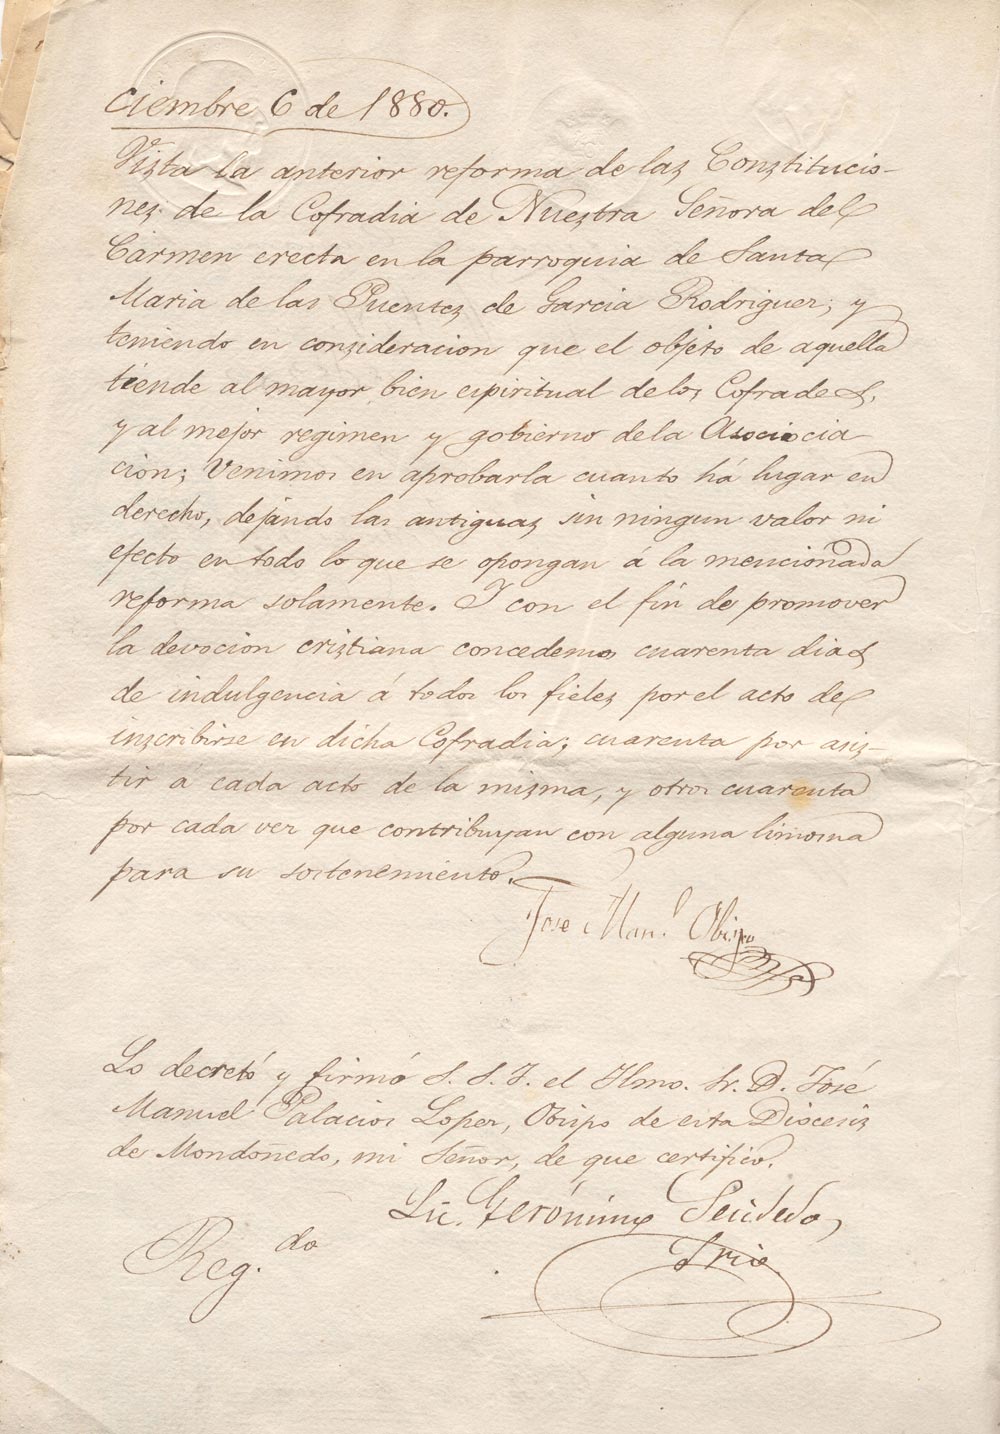 ciembre 6 de 1880.
Vista la anterior reforma de las Constitucio-
nes de la Cofradia de Nuestra Señora del
Cármen erecta en la parroquia de Santa
Maria de las Puentes de Garcia Rodriguez; y
teniendo en consideracion que el objeto de aquella
tiende al mayor bien espiritual de los Cofrades,
y al mejor regimen y gobierno de la Asociocia-
cion; Venimos en aprobarla cuanto há lugar en
derecho, dejando las antiguas sin ningun valor ni
efecto en todo lo que se opongan á la mencionada
reforma solamente. I con el fin de promover
la devocion cristiana concedemos cuarenta dias
de indulgencia á todos los fieles por el acto de
inscribirse en dicha Cofradia; cuarenta por asis-
tir á cada acto de la misma, y otros cuarenta
por cada vez que contribuyan con alguna limosna
para su sostenemiento.
Jose Man.l Obispo
Lo decretó y firmó S. S. I. el Ilmo. Sr. D. José
Manuel Palacios Lopez, Obispo de esta Diócesis
de Mondoñedo, mi Señor, de que certifico.
Lic. Gerónimo
Srio
Reg.do